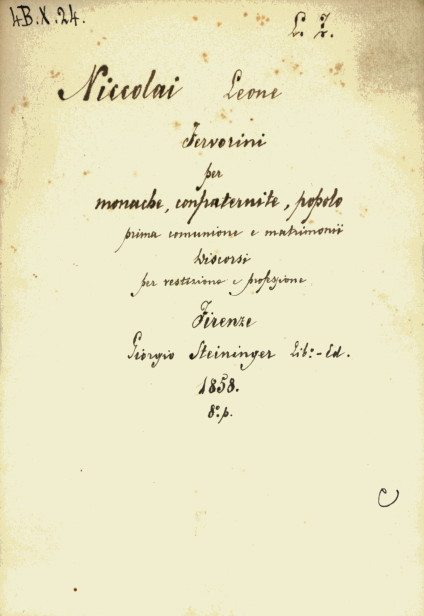 4B.X.24.
L. 2.
Niccolai Leone
Fervorini
per
monache, confraternite, popolo
prima comunione e matrimonii
Discorsi
per vestizione e professione
Firenze
Giorgio Steininger Lib.-Ed.
1858.
8º p.
C